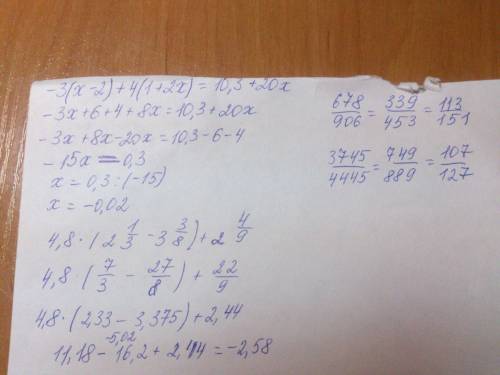 -3(x-2)+4(1+2x)=10,3+20x
-3x+6+4+8x=10,3+20x
-3x+8x-20x=10,3-6-4
-15x=0,3
x=0,3:(-15)
x=-0,02
4,8·(2 1/3-3 3/8)+2 4/9
4,8·(7/3-27/8)+22/9
4,8·(2,33-3,375)+2,44
-5,02
11,18-16,2+2,44=-2,58
678/906=339/453=113/151
3745/4445=749/889=107/127